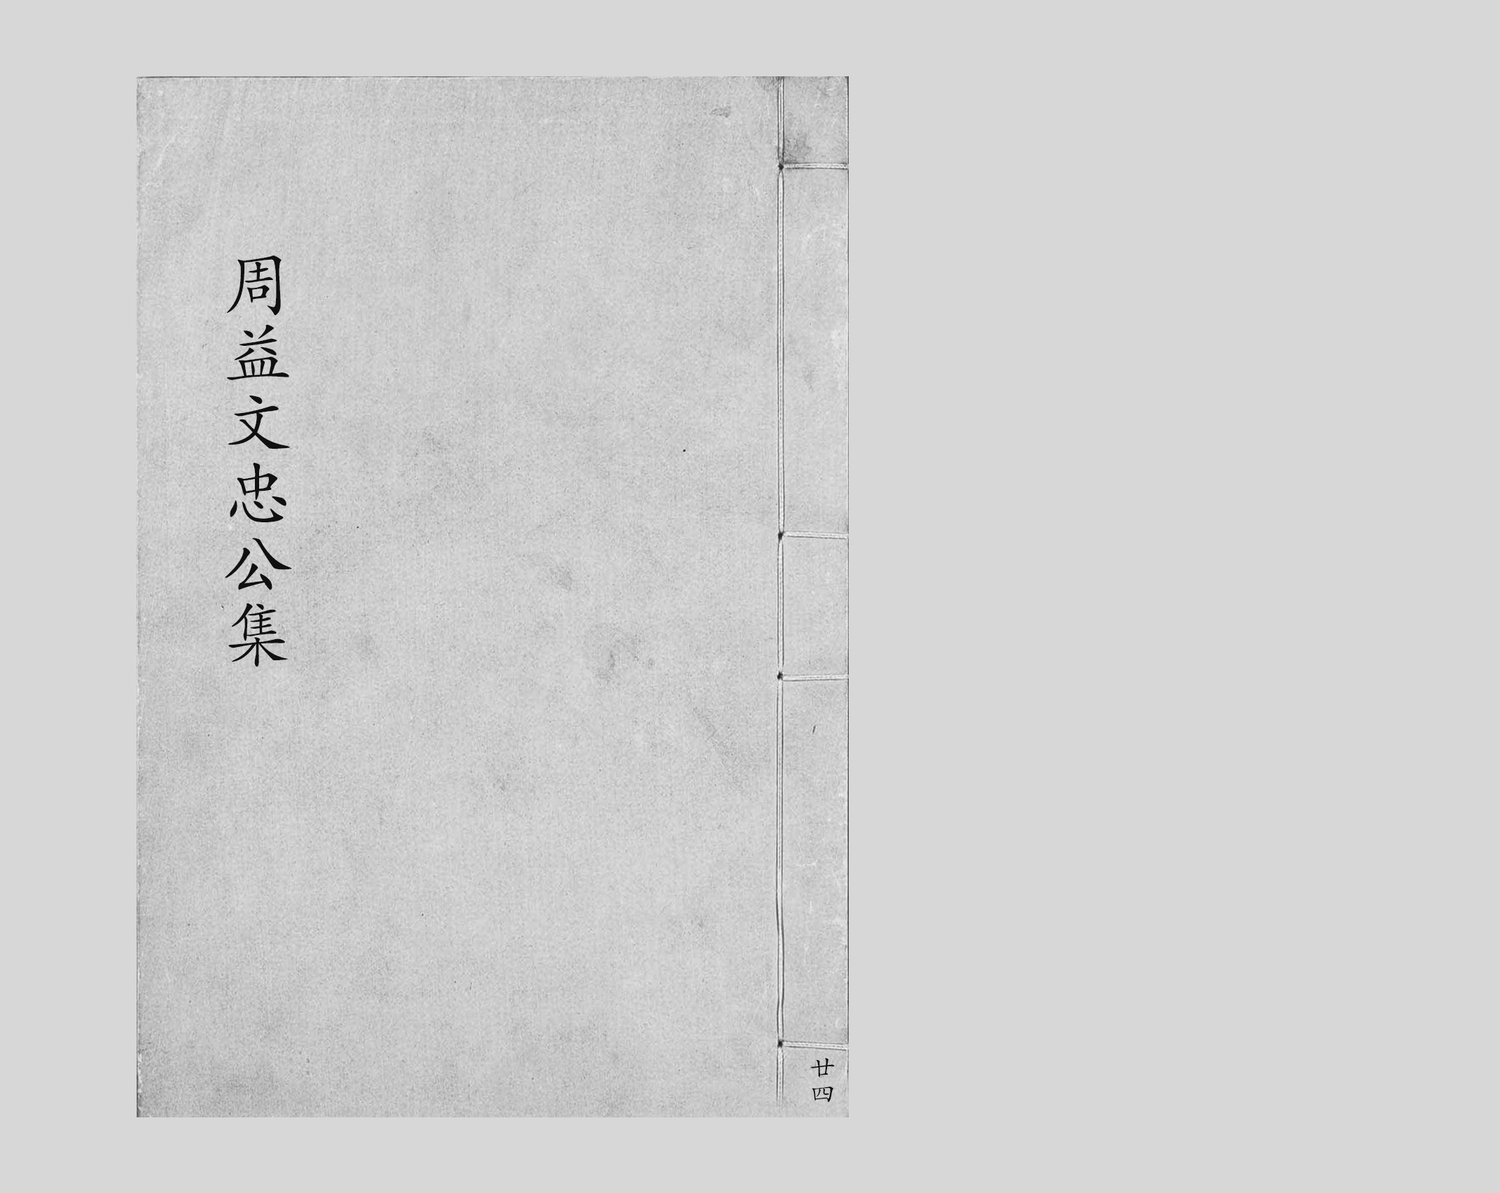 周益文忠公集
廿四